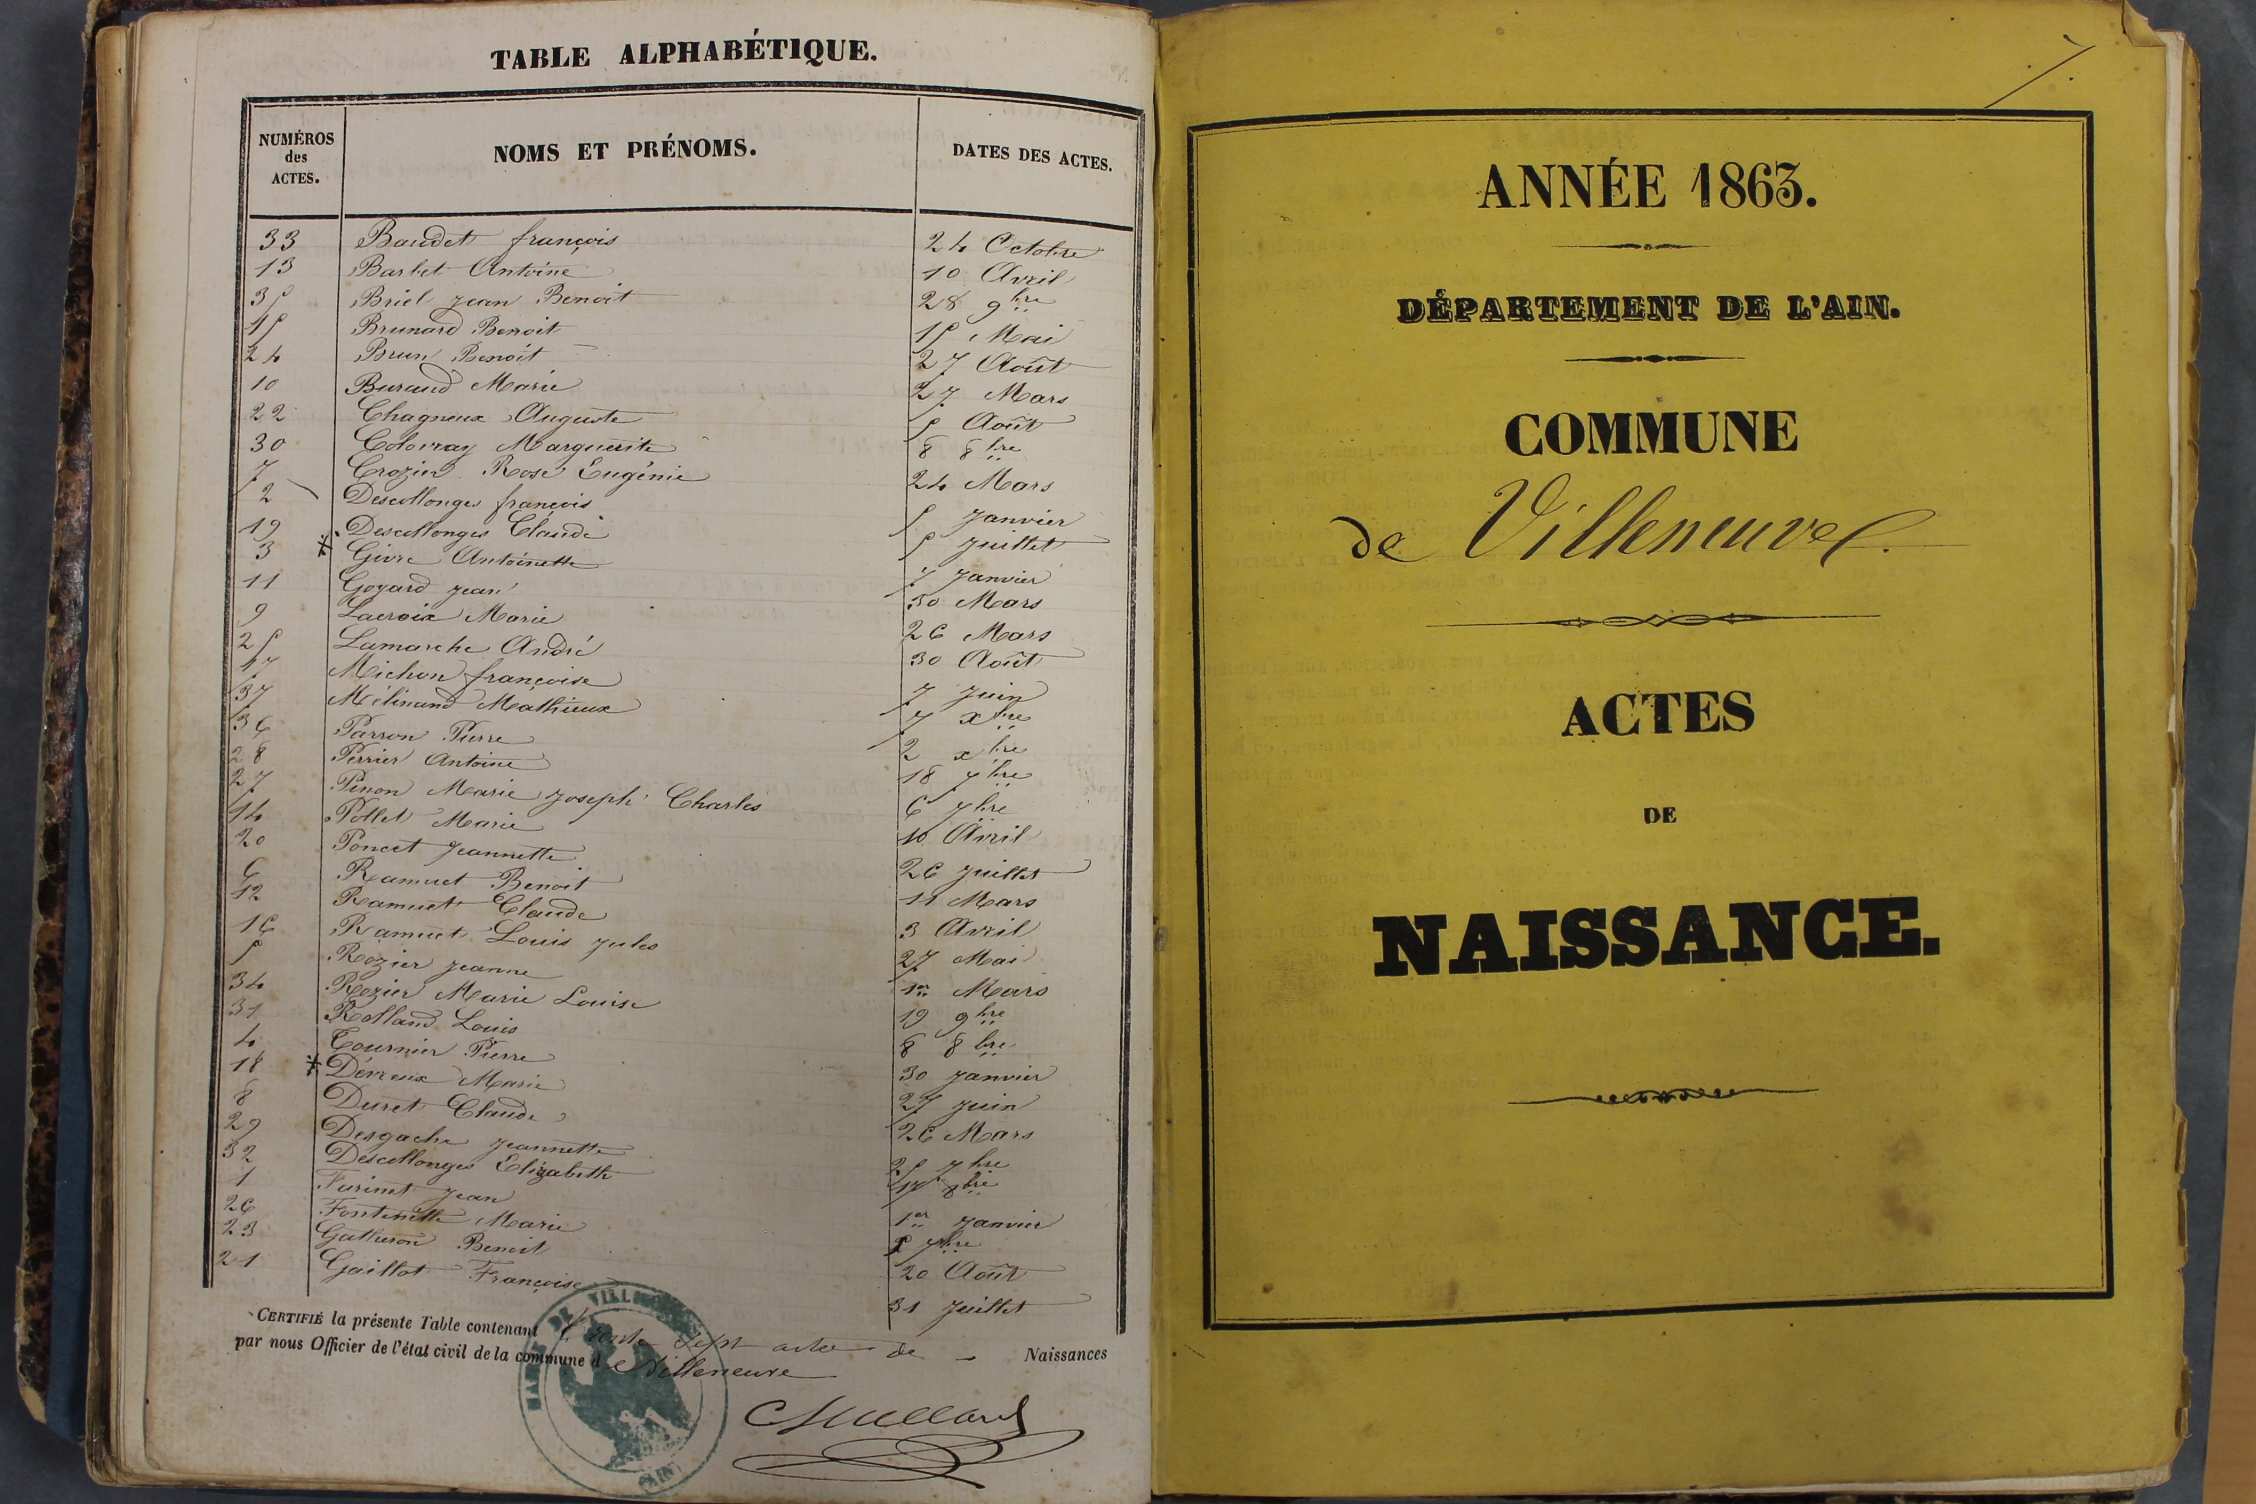 TABLE ALPHABÉTIQUE.
NUMÉROS des ACTES. NOMS ET PRÉNOMS. DATES DES ACTES.
33 Baudet françois 24 Octobre
13 Barbet Antoine 10 Avril
35 Briel jean Benoit 28 9bre
15 Brunard Benoit 15 Mai
24 Brun Benoit 27 Août
10 Buraud Marie 27 Mars
22 Chagneux Auguste 5 Août
30 Colovray Marguerite 8 8bre
7 Crozier Rose Eugénie 24 Mars
2 Descollonges françois 5 janvier
19 Descollonges Claude 5 juillet
3 Givre Antoinette 7 janvier
11 Goyard jean 30 Mars
9 Lacroix Marie 26 Mars
25 Lamarche André 30 Août
17 Michon françoise 7 juin
37 Mélinand Mathieux 7 xbre
36 Parron Pierre 2 xbre
28 Perrier Antoine 18 7bre
27 Pinon Marie joseph Charles 6 7bre
14 Pollet Marie 10 Avril
20 Poncet jeannette 26 juillet
6 Ramuet Benoit 11 Mars
12 Ramuet Claude 3 Avril
16 Ramuet Louis jules 27 Mai
5 Rozier jeanne 1er Mars
34 Rozier Marie Louise 19 9bre
31 Rolland Louis 8 8bre
4 Tournier Pierre 30 janvier
18 Dévreux Marie 27 juin
8 Duret Claude 26 Mars
29 Desgache jeannette 25 7bre
32 Descollonges Elizabeth 17 8bre
1 Farinet jean 1er janvier
26 Fontenelle Marie 5 7bre
23 Gatheron Benoit 20 Août
21 Gaillot Françoise 31 juillet
CERTIFIÉ la présente Table contenant trente sept actes de Naissances
par nous Officier de l'état civil de la commune de Villeneuve
MAIRIE DE VILLENEUVE
(AIN)
ANNÉE 1863.
DÉPARTEMENT DE L'AIN.
COMMUNE
de Villeneuve
ACTES
DE
NAISSANCE.